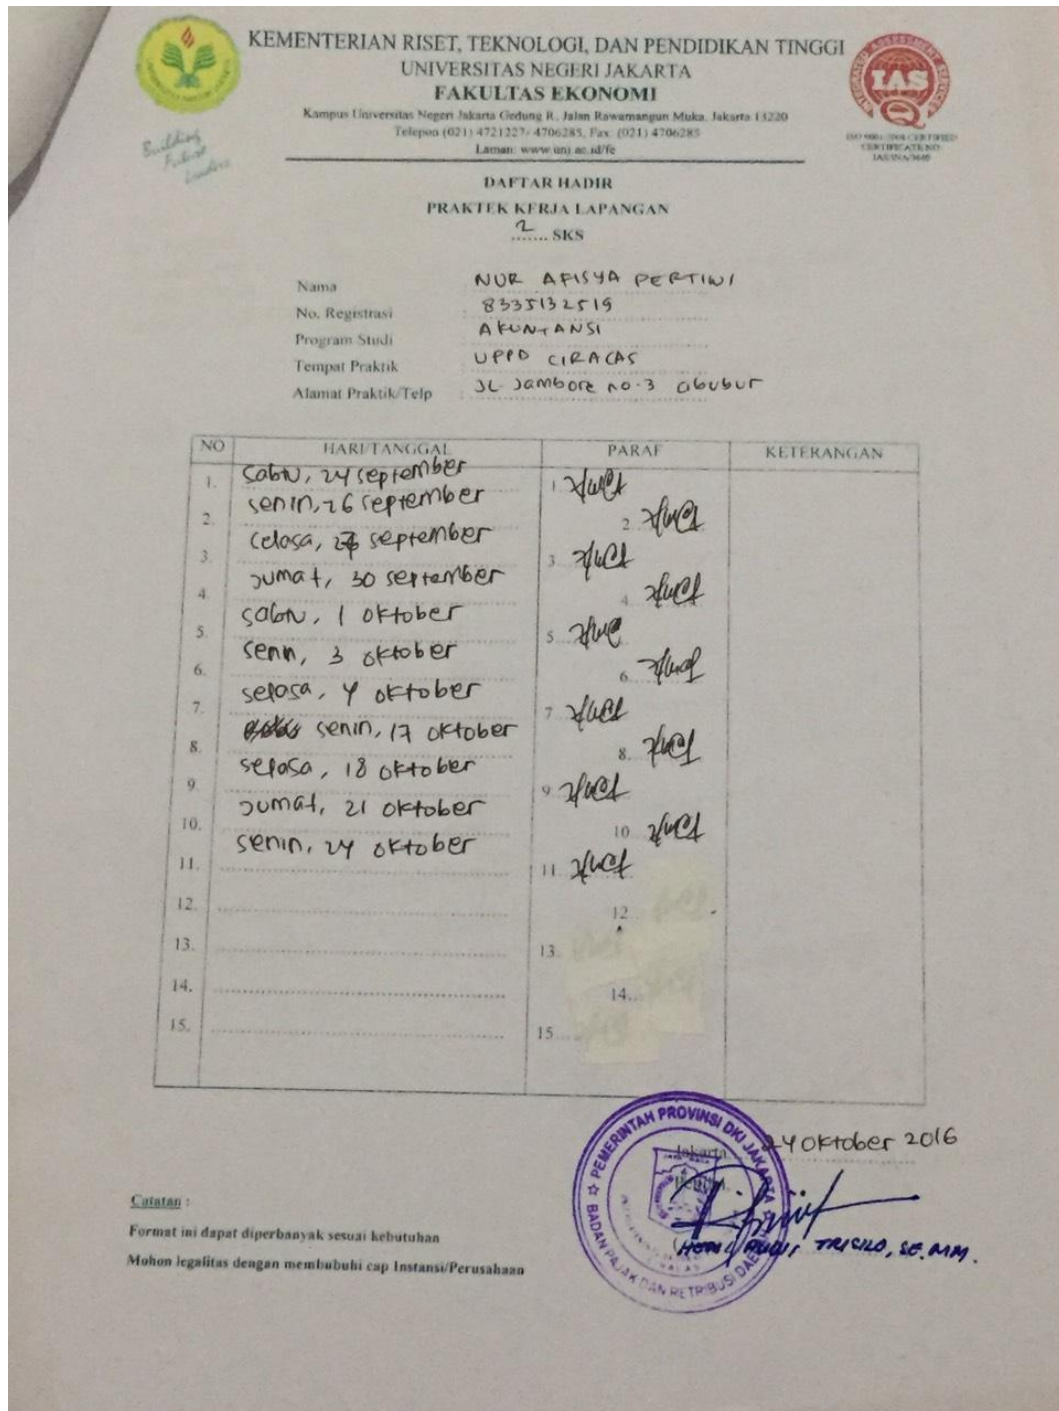 KEMENTERIAN RISET, TEKNOLOGI, DAN PENDIDIKAN TINGGI
UNIVERSITAS NEGERI JAKARTA
FAKULTAS EKONOMI
Kampus Universitas Negeri Jakarta Gedung R, Jalan Rawamangun Muka, Jakarta 13220
Telepon (021) 4721227/ 4706285, Fax. (021) 4706285
Laman: www.unj.ac.id/fe
Building
Future
Leaders
IAS
ISO 9001:2008 CERTIFIED
CERTIFICATE NO
DAFTAR HADIR
PRAKTEK KERJA LAPANGAN
2 SKS
Nama : NUR AFISYA PERTIWI
No. Registrasi : 8335132519
Program Studi : AKUNTANSI
Tempat Praktik : UPPD CIRACAS
Alamat Praktik/Telp : JL Jambore no.3 Cibubur
NO HARI/TANGGAL PARAF KETERANGAN
1. Sabtu, 24 september 1
2. senin, 26 september 2.
3. selasa, 27 september 3
4. Jumat, 30 september 4
5. sabtu, 1 oktober 5
6. senin, 3 oktober 6
7. selasa, 4 oktober 7
8. senin, 17 oktober 8.
9. selasa, 18 oktober 9
10. Jumat, 21 oktober 10
11. senin, 24 oktober 11
12. 12
13. 13.
14. 14...
15. 15
Jakarta, 24 Oktober 2016
PEMERINTAH PROVINSI DKI JAKARTA
BADAN PAJAK DAN RETRIBUSI DAERAH
TRISILO, SE. MM.
Catatan :
Format ini dapat diperbanyak sesuai kebutuhan
Mohon legalitas dengan membubuhi cap Instansi/Perusahaan